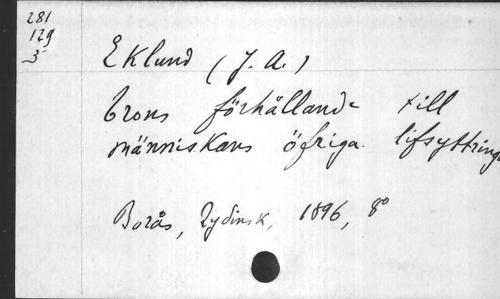 281
129
3
Eklund (J. A.)
Trons förhållande till
människans öfriga lifsyttringa
Borås, Rydinsk, 1896, 8°